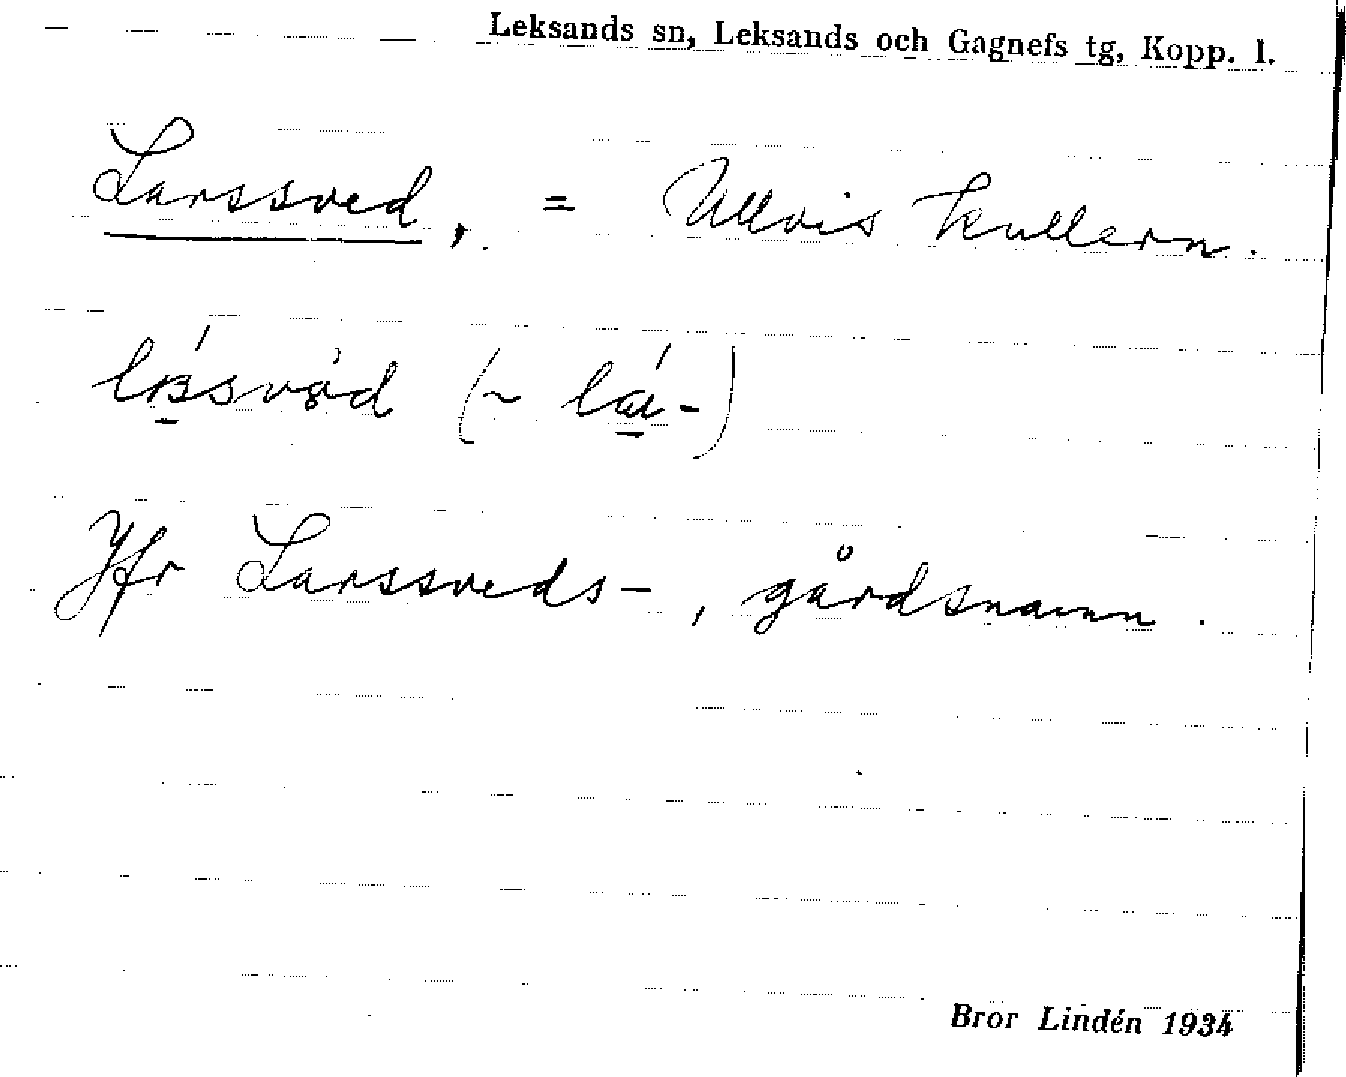 Leksands sn, Leksands och Gagnefs tg, Kopp. l.
Larssved, = Ullvis kullern.
(~
Jfr Larssveds-, gårdsnamn.
Bror Lindén 1934